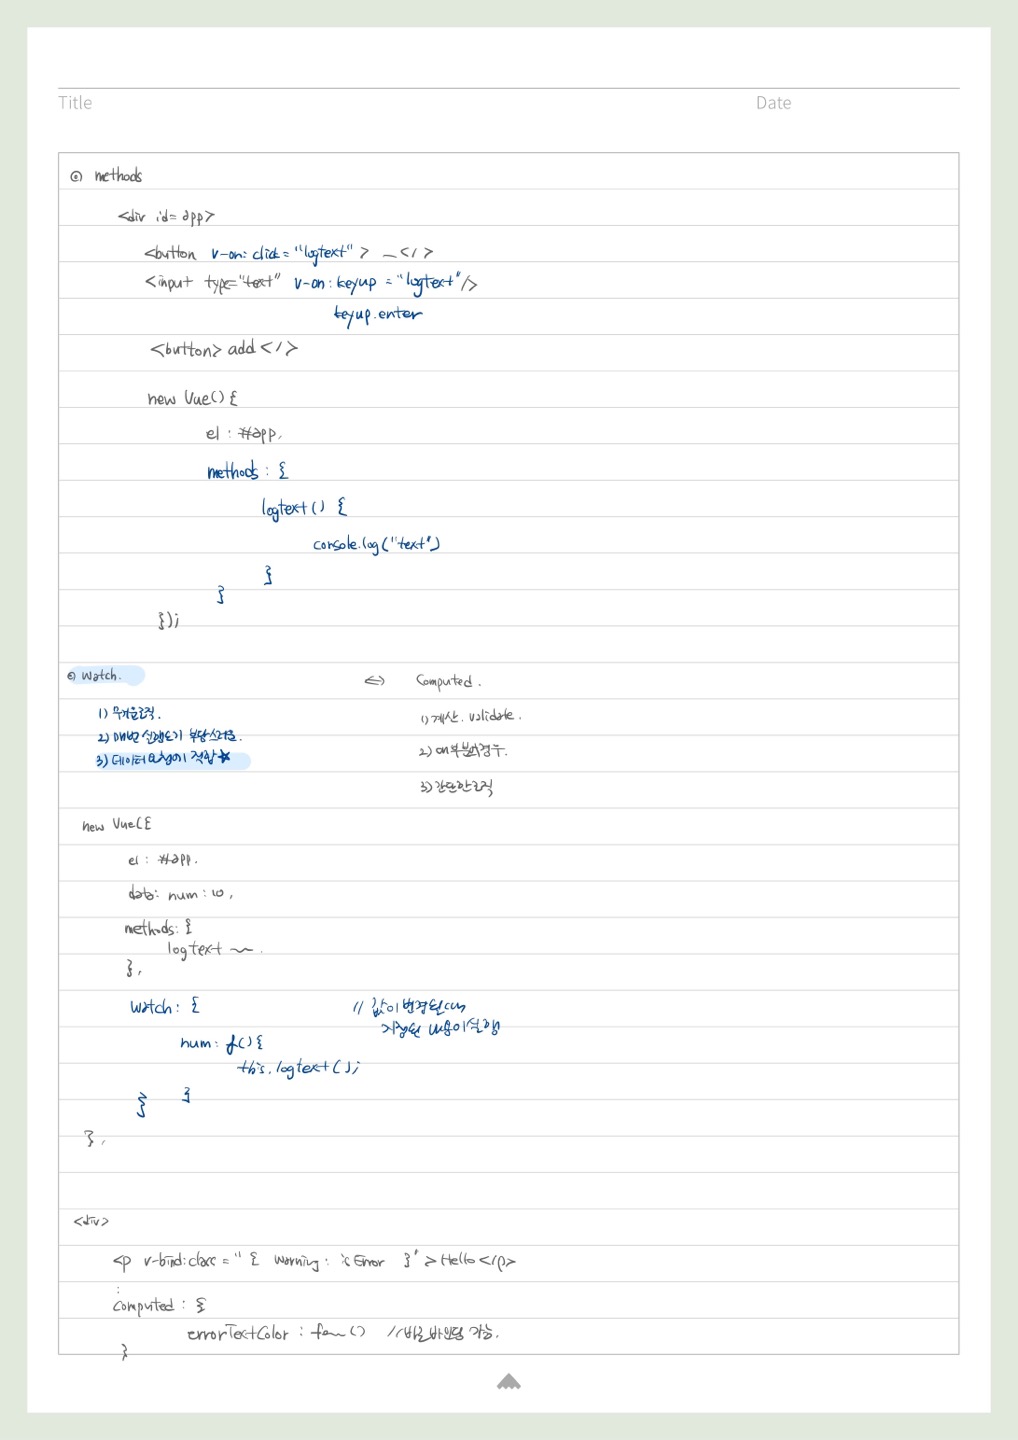 Title Date
⊙ methods
<div id=app>
<button v-on:click="logtext" > _</ >
<input type="text" v-on:keyup ="logtext"/>
keyup.enter
<button> add </ >
new Vue() {
el : #app,
methods : {
logtext () {
console.log("text")
}
}
});
⊙ Watch. <=> Computed.
1) 무거운로직. 1) 계산. validate.
2) 매번 실행되기 부담스러운. 2) 대부분의경우.
3) 데이터요청에 적합★
3) 간단한로직
new Vue({
el : #app.
data: num : 10,
methods: {
logtext ~.
},
Watch: { // 값이변경될때
지정된 내용이실행
num: f() {
this.logtext();
}
}
},
<div>
<p v-bind:class = " { warning : isError }" > Hello </p>
:
computed : {
errorTextColor : () //바로바인딩 가능.
}